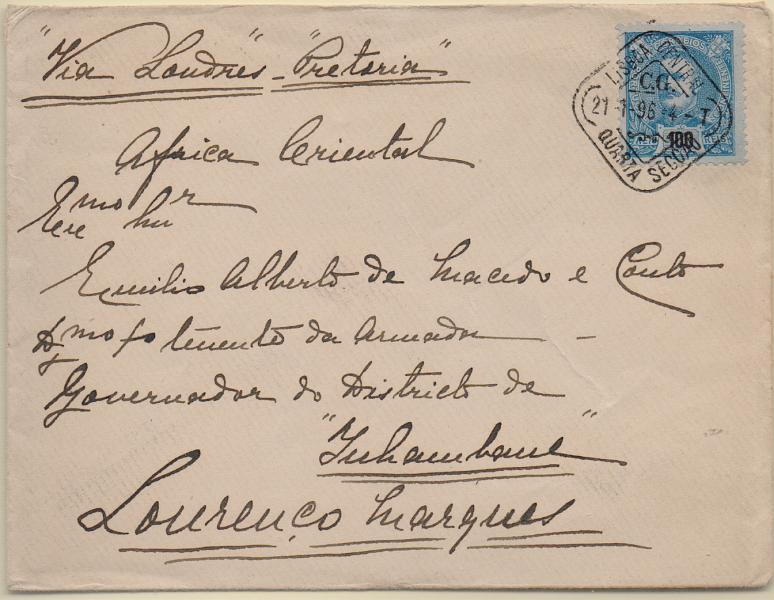 "Via Londres" - "Pretoria"
Africa Oriental
Exmo Snr
Emilio Alberto de Macedo e Couto
Dmo 1o tenente da Armada
Governador do Districto de
"Inhambane"
Lourenço Marques
LISBOA CENTRAL
C.G.
96 4-T
QUARTA SECÇÃO
100
REIS